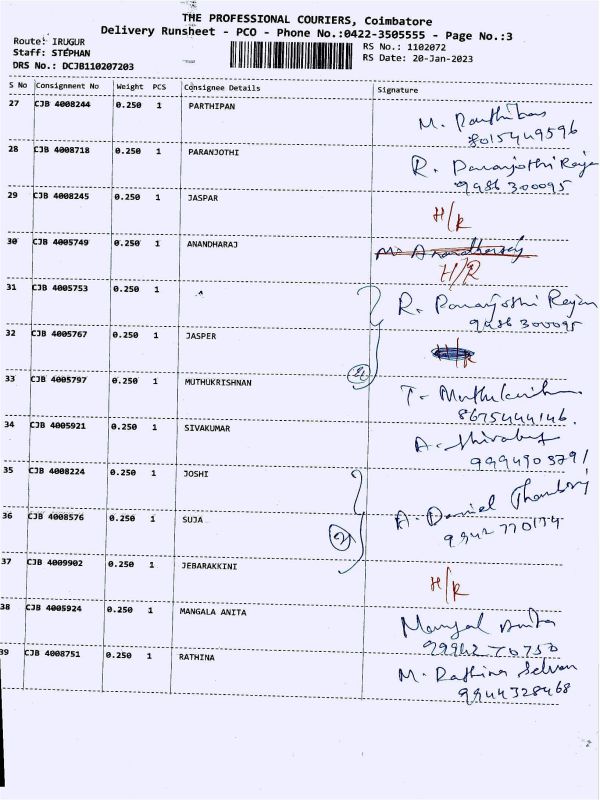 THE PROFESSIONAL COURIERS, Coimbatore
Delivery Runsheet - PCO - Phone No.:0422-3505555 - Page No.:3
Route: IRUGUR
Staff: STEPHAN
DRS No.: DCJB110207203
RS No.: 1102072
RS Date: 20-Jan-2023
S No Consignment No Weight PCS Consignee Details Signature
27 CJB 4008244 0.250 1 PARTHIPAN M. Parthiban
8015449596
28 CJB 4008718 0.250 1 PARANJOTHI R. Paranjothi Rajan
9986300095
29 CJB 4008245 0.250 1 JASPAR H/R
30 CJB 4005749 0.250 1 ANANDHARAJ
H/R
31 CJB 4005753 0.250 1 R. Paranjothi Rajan
9986300095
32 CJB 4005767 0.250 1 JASPER
33 CJB 4005797 0.250 1 MUTHUKRISHNAN T. Muthukrishnan
8675444146.
34 CJB 4005921 0.250 1 SIVAKUMAR
9994903791
35 CJB 4008224 0.250 1 JOSHI
36 CJB 4008576 0.250 1 SUJA A. Daniel
37 CJB 4009902 0.250 1 JEBARAKKINI H/R
38 CJB 4005924 0.250 1 MANGALA ANITA Mangal Anita
9994270750
39 CJB 4008751 0.250 1 RATHINA M. Rathina Selvan
9944328468